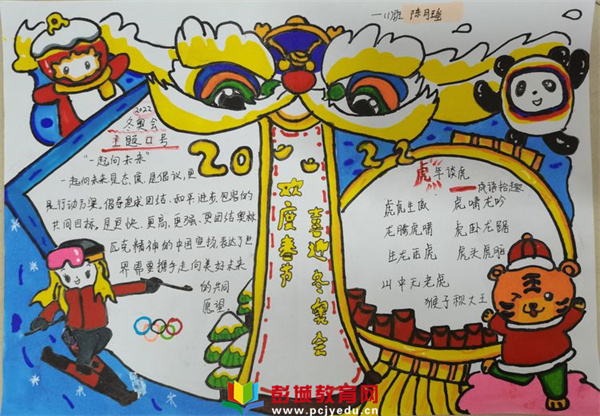 一(1)班 陈月瑶
2022
冬奥会
主题口号
"一起向未来"
一起向未来是态度,是倡议,更
是行动方案,倡导追求团结、和平进步、包容的
共同目标,是更快、更高、更强、更团结奥林
匹克精神的中国宣扬,表达了世
界需要携手走向美好未来
的共同
愿望
20
22
欢度春节
喜迎冬奥会
虎年谈虎
成语拾趣
虎虎生威 虎啸龙吟
龙腾虎啸 虎卧龙跳
生龙活虎 虎头虎脑
山中无老虎
猴子称大王
彭城教育网
www.pcjyedu.cn